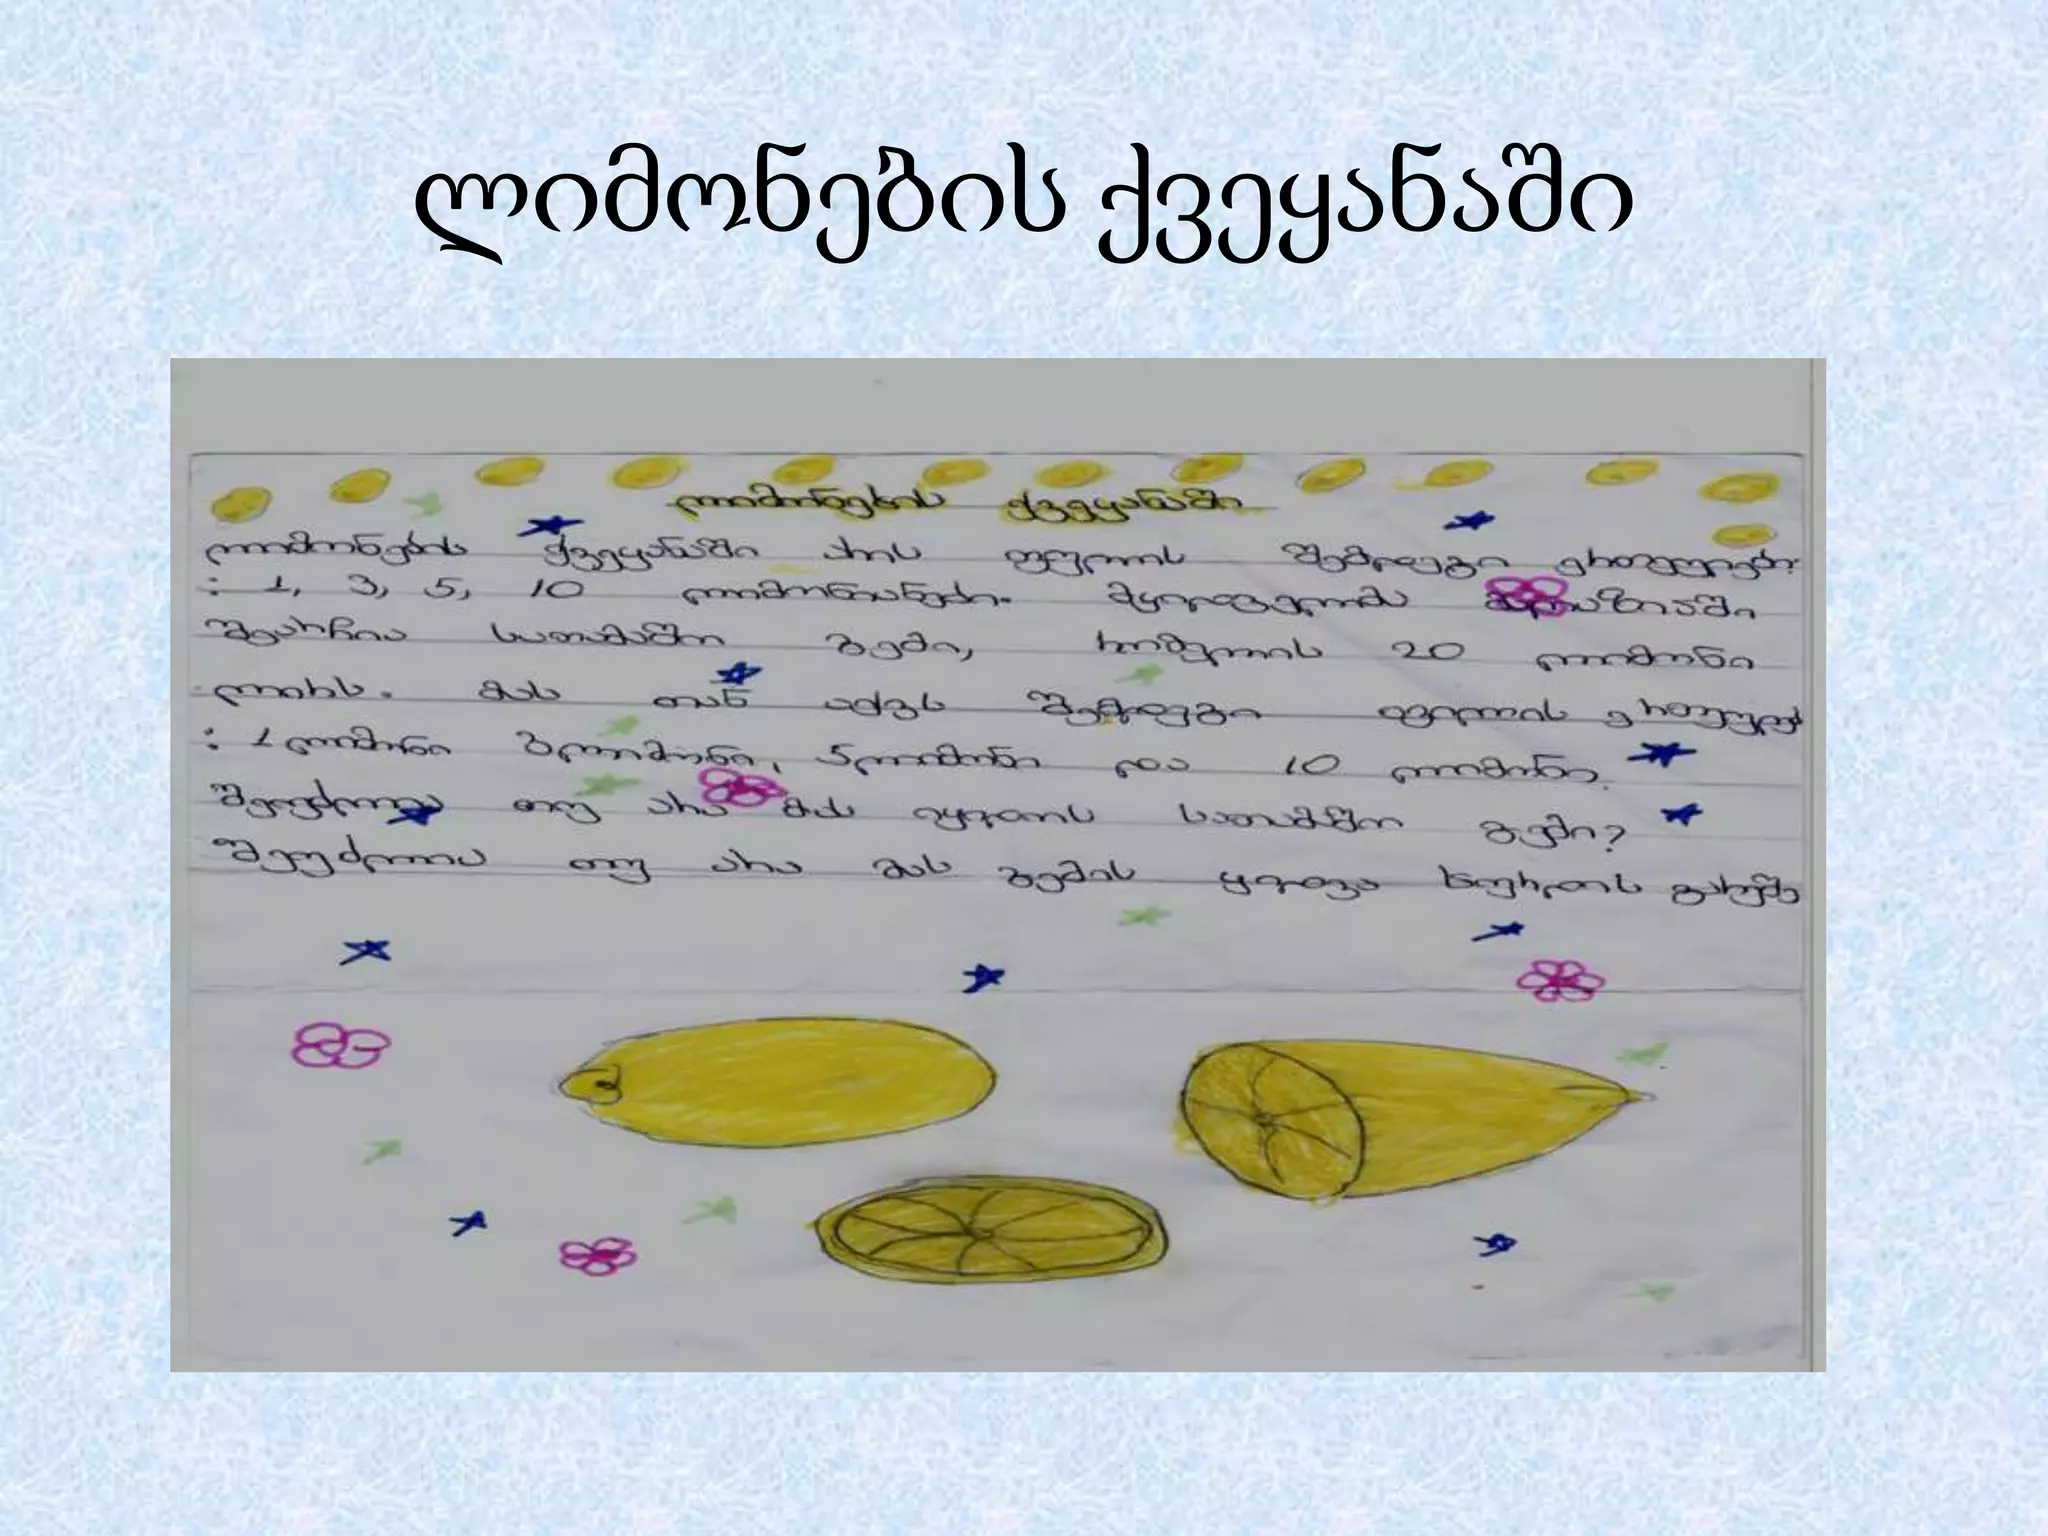 ლიმონების ქვეყანაში
ლიმონების ქვეყანაში
ლიმონების ქვეყანაში არის ფულის შემდეგი ერთეულები
: 1, 3, 5, 10 ლიმონიანები. მყიდველმა მაღაზიაში
შეარჩია სათამაშო გემი, რომელის 20 ლიმონი
ღირს. მას თან აქვს შემდეგი ფულის ერთეულებ
: 1 ლიმონი 3 ლიმონი, 5 ლიმონი და 10 ლიმონი.
შეიძლება თუ არა მას იყიდოს სათამაშო გემი?
შეუძლია თუ არა მას გემის ყიდვა ხურდის გარეშე